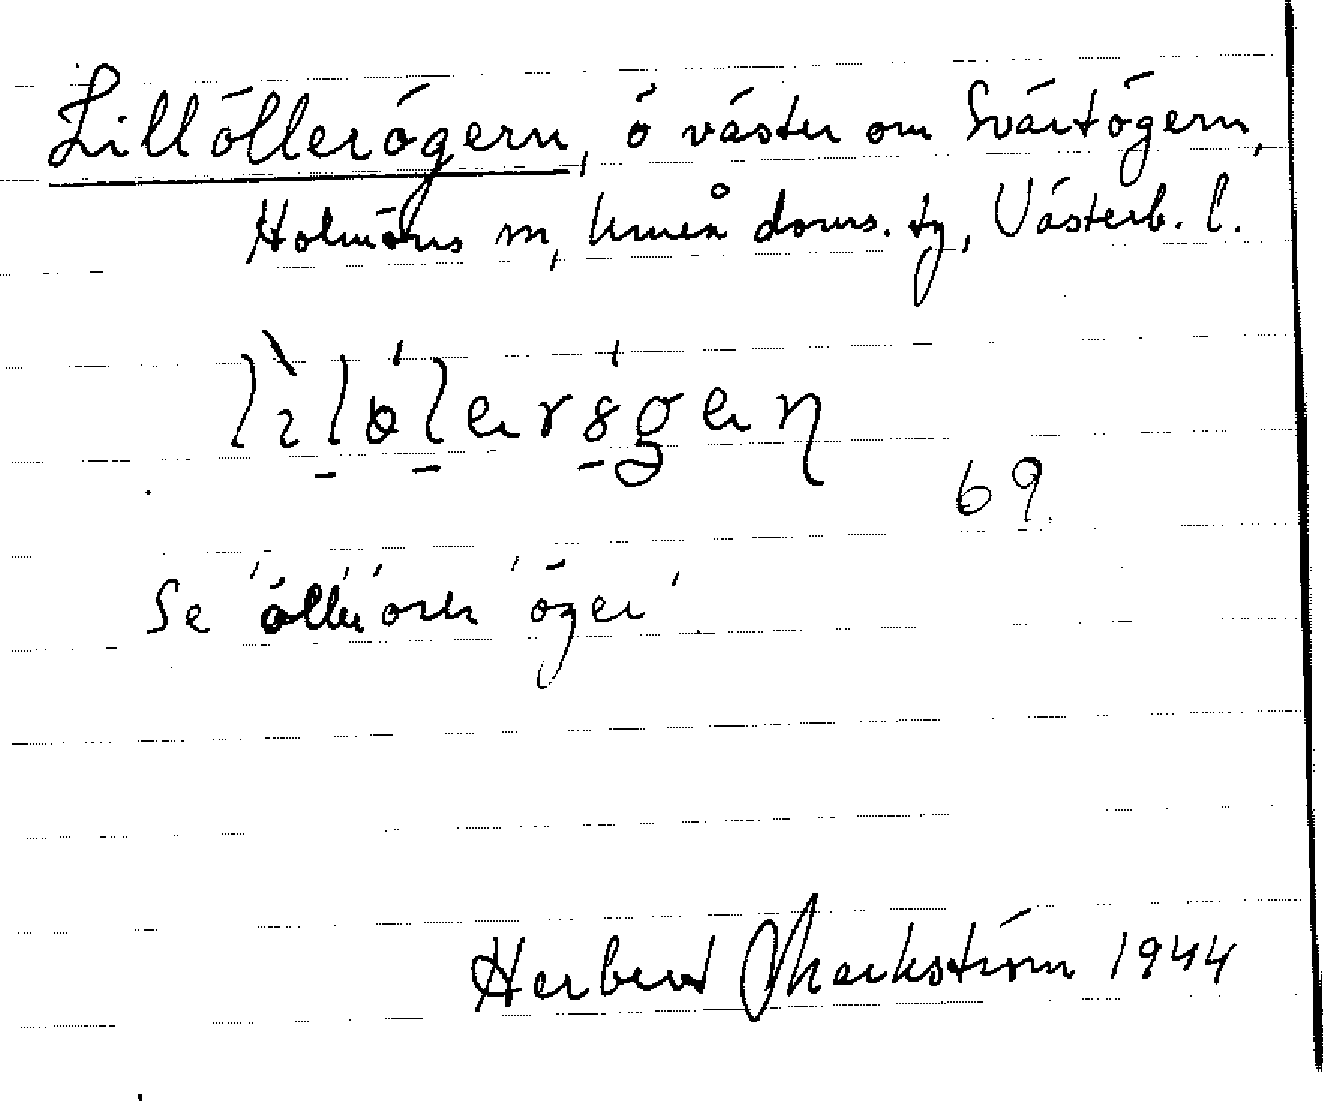 Lillöllerögern, ö väster om Svartögern,
Holmöns m, Umeå doms. tg, Västerb. l.
69.
Se 'öller' och 'öger'.
Herbert Markström 1944